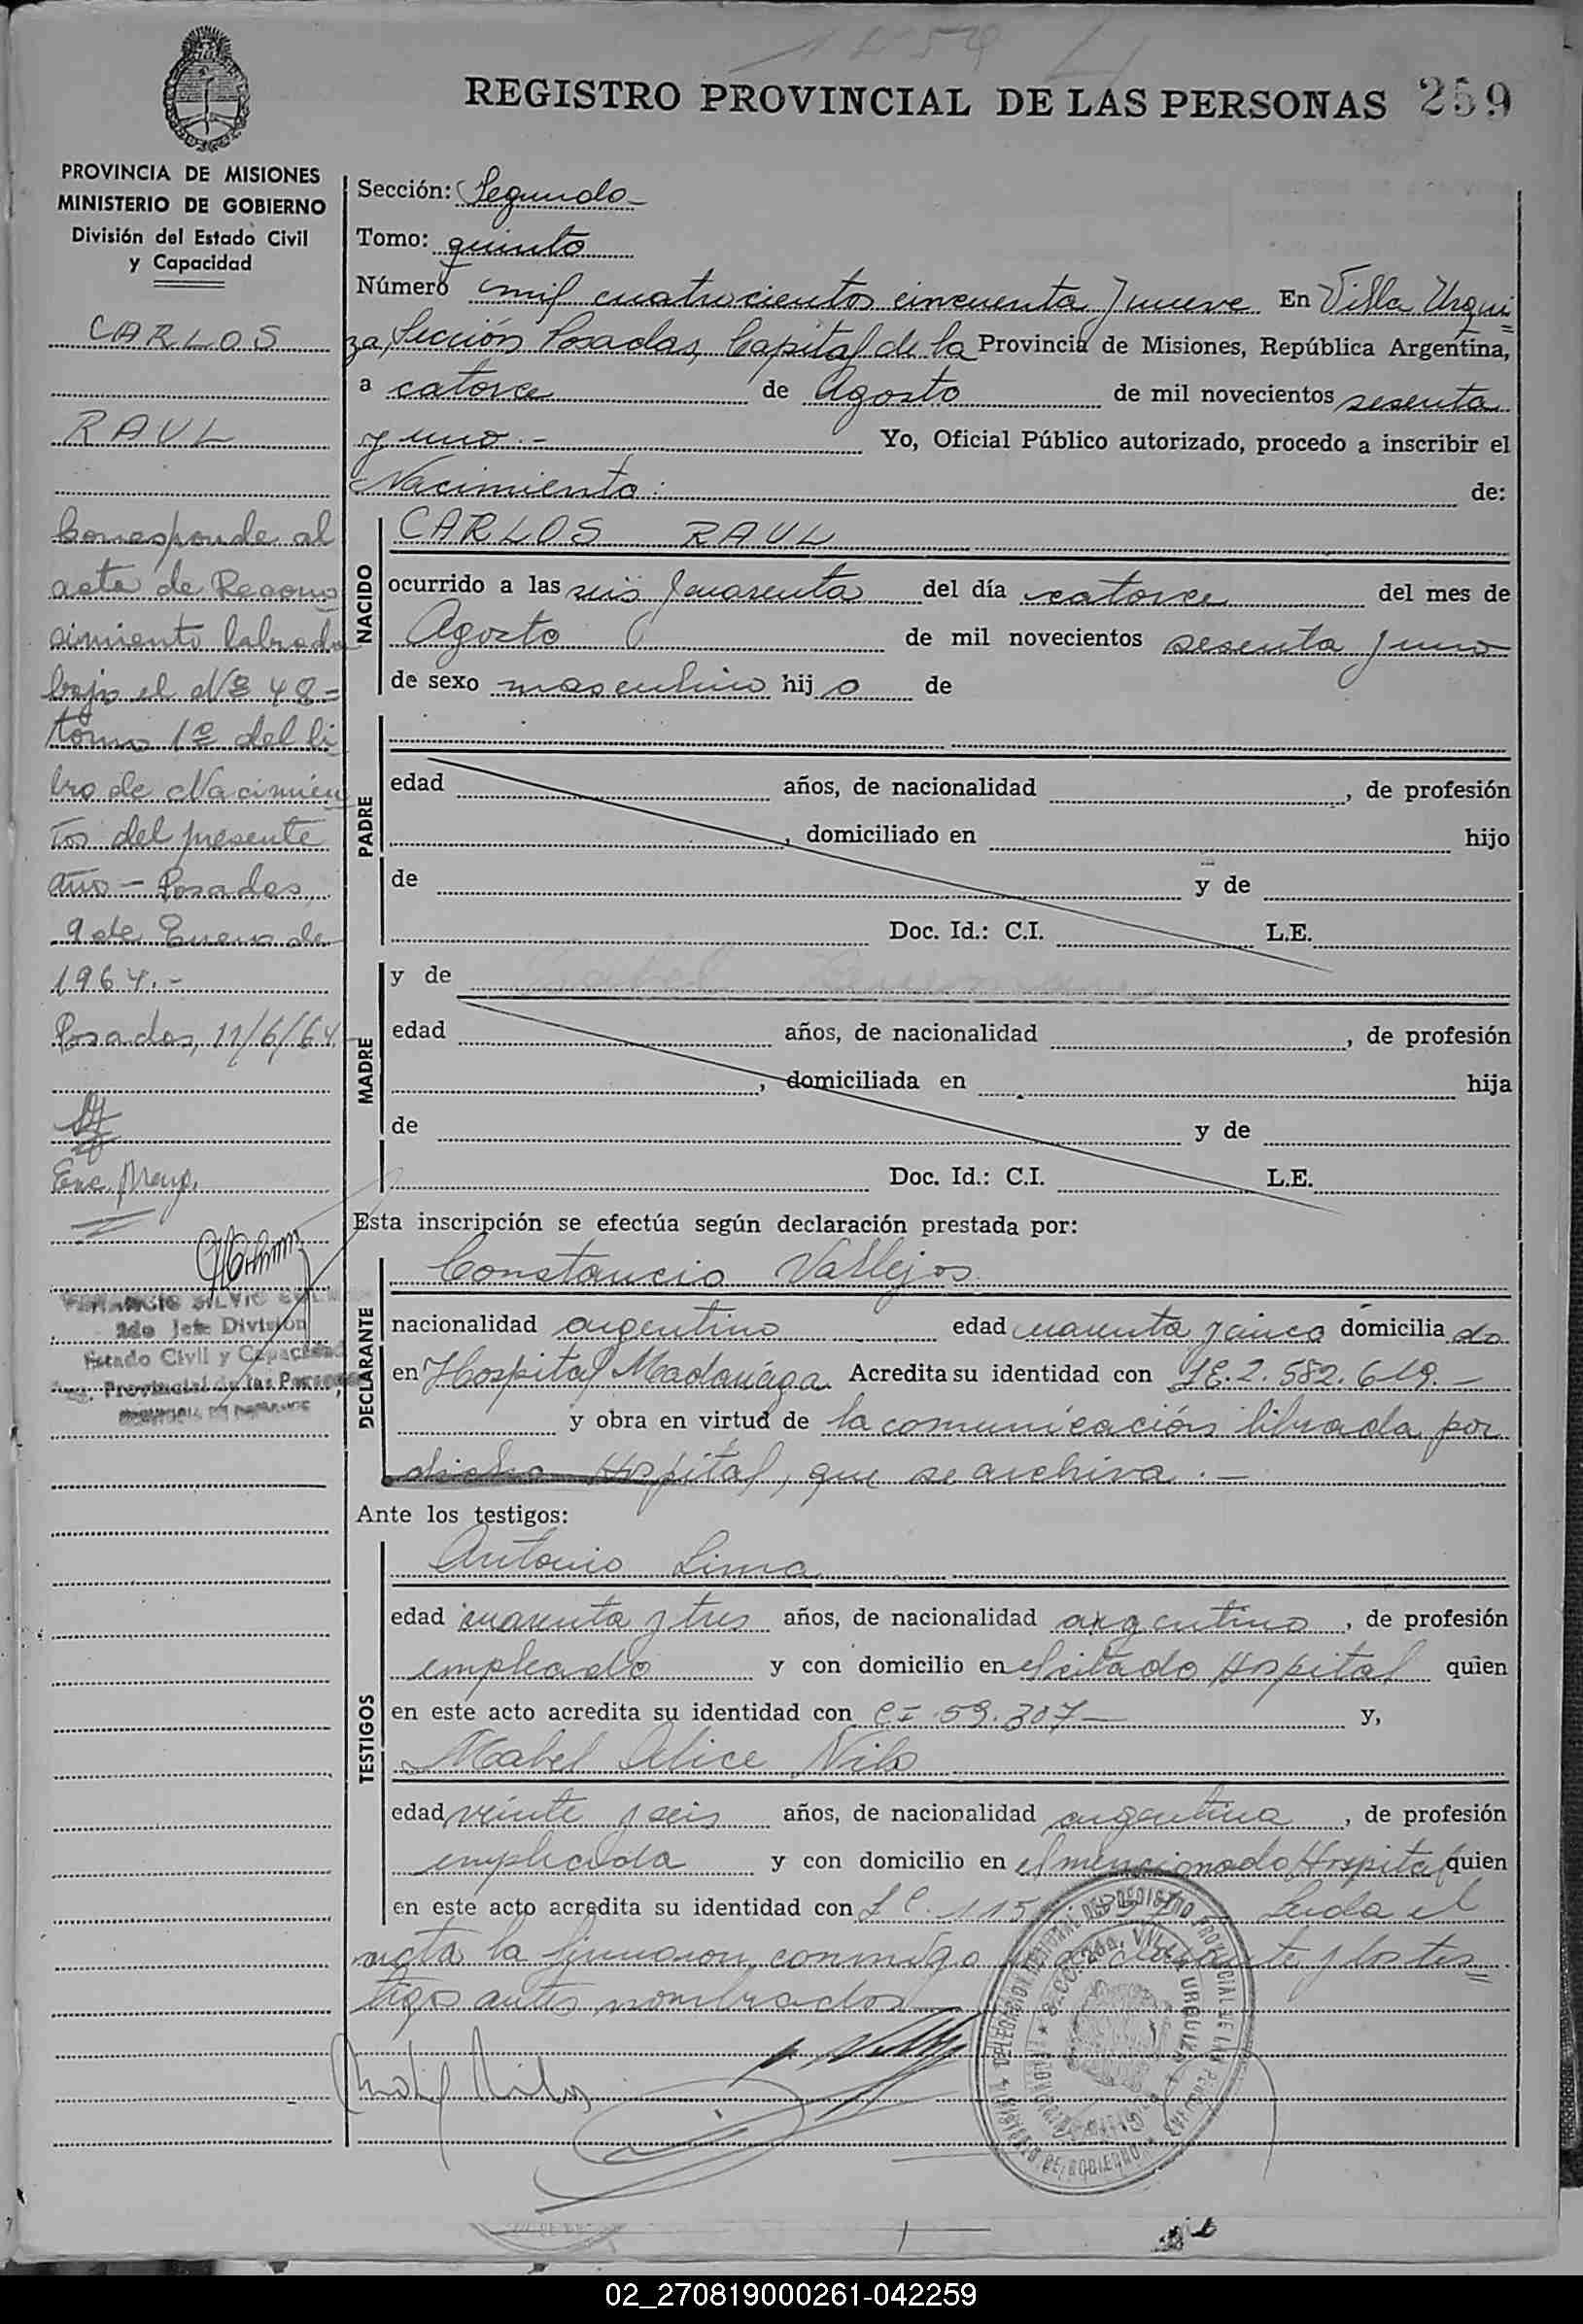 REGISTRO PROVINCIAL DE LAS PERSONAS 259
PROVINCIA DE MISIONES
MINISTERIO DE GOBIERNO
División del Estado Civil
y Capacidad
CARLOS
RAUL
Corresponde al
acta de Recono
cimiento labrada
bajo el Nº 48=
tomo 1º del li
bro de Nacimien
tos del presente
año - Posadas,
9 de Enero de
1964.-
Posadas, 11/6/64
2do Jefe División
Estado Civil y Capacidad
Reg. Provincial de las Personas
Sección: Segunda
Tomo: quinto
Número mil cuatrocientos cincuenta y nueve En Villa Urqui
za, Sección Posadas, Capital de la Provincia de Misiones, República Argentina,
a catorce de Agosto de mil novecientos sesenta
y uno.- Yo, Oficial Público autorizado, procedo a inscribir el
Nacimiento: de:
NACIDO
CARLOS RAUL
ocurrido a las seis y cuarenta del día catorce del mes de
Agosto de mil novecientos sesenta y uno
de sexo masculino hij o de
PADRE
edad años, de nacionalidad , de profesión
, domiciliado en hijo
de y de
Doc. Id.: C.I. L.E.
MADRE
y de
edad años, de nacionalidad , de profesión
, domiciliada en hija
de y de
Doc. Id.: C.I. L.E.
Esta inscripción se efectúa según declaración prestada por:
DECLARANTE
Constancio Vallejos
nacionalidad argentino edad cuarenta y cinco domicilia do
en Hospital Madariaga. Acredita su identidad con L.E. 2.582.619.-
y obra en virtud de la comunicación librada por
dicho Hospital, que se archiva.-
Ante los testigos:
TESTIGOS
Antonio Lima
edad cuarenta y tres años, de nacionalidad argentino, de profesión
empleado y con domicilio en el citado Hospital quien
en este acto acredita su identidad con CI 59.307- y,
Mabel Alice Nilo
edad veinte y seis años, de nacionalidad argentina, de profesión
empleada y con domicilio en el mencionado Hospital quien
en este acto acredita su identidad con L C. 115 Leída el
acta la firmaron conmigo el declarante y los tes
tigos antes nombrados
02_270819000261-042259